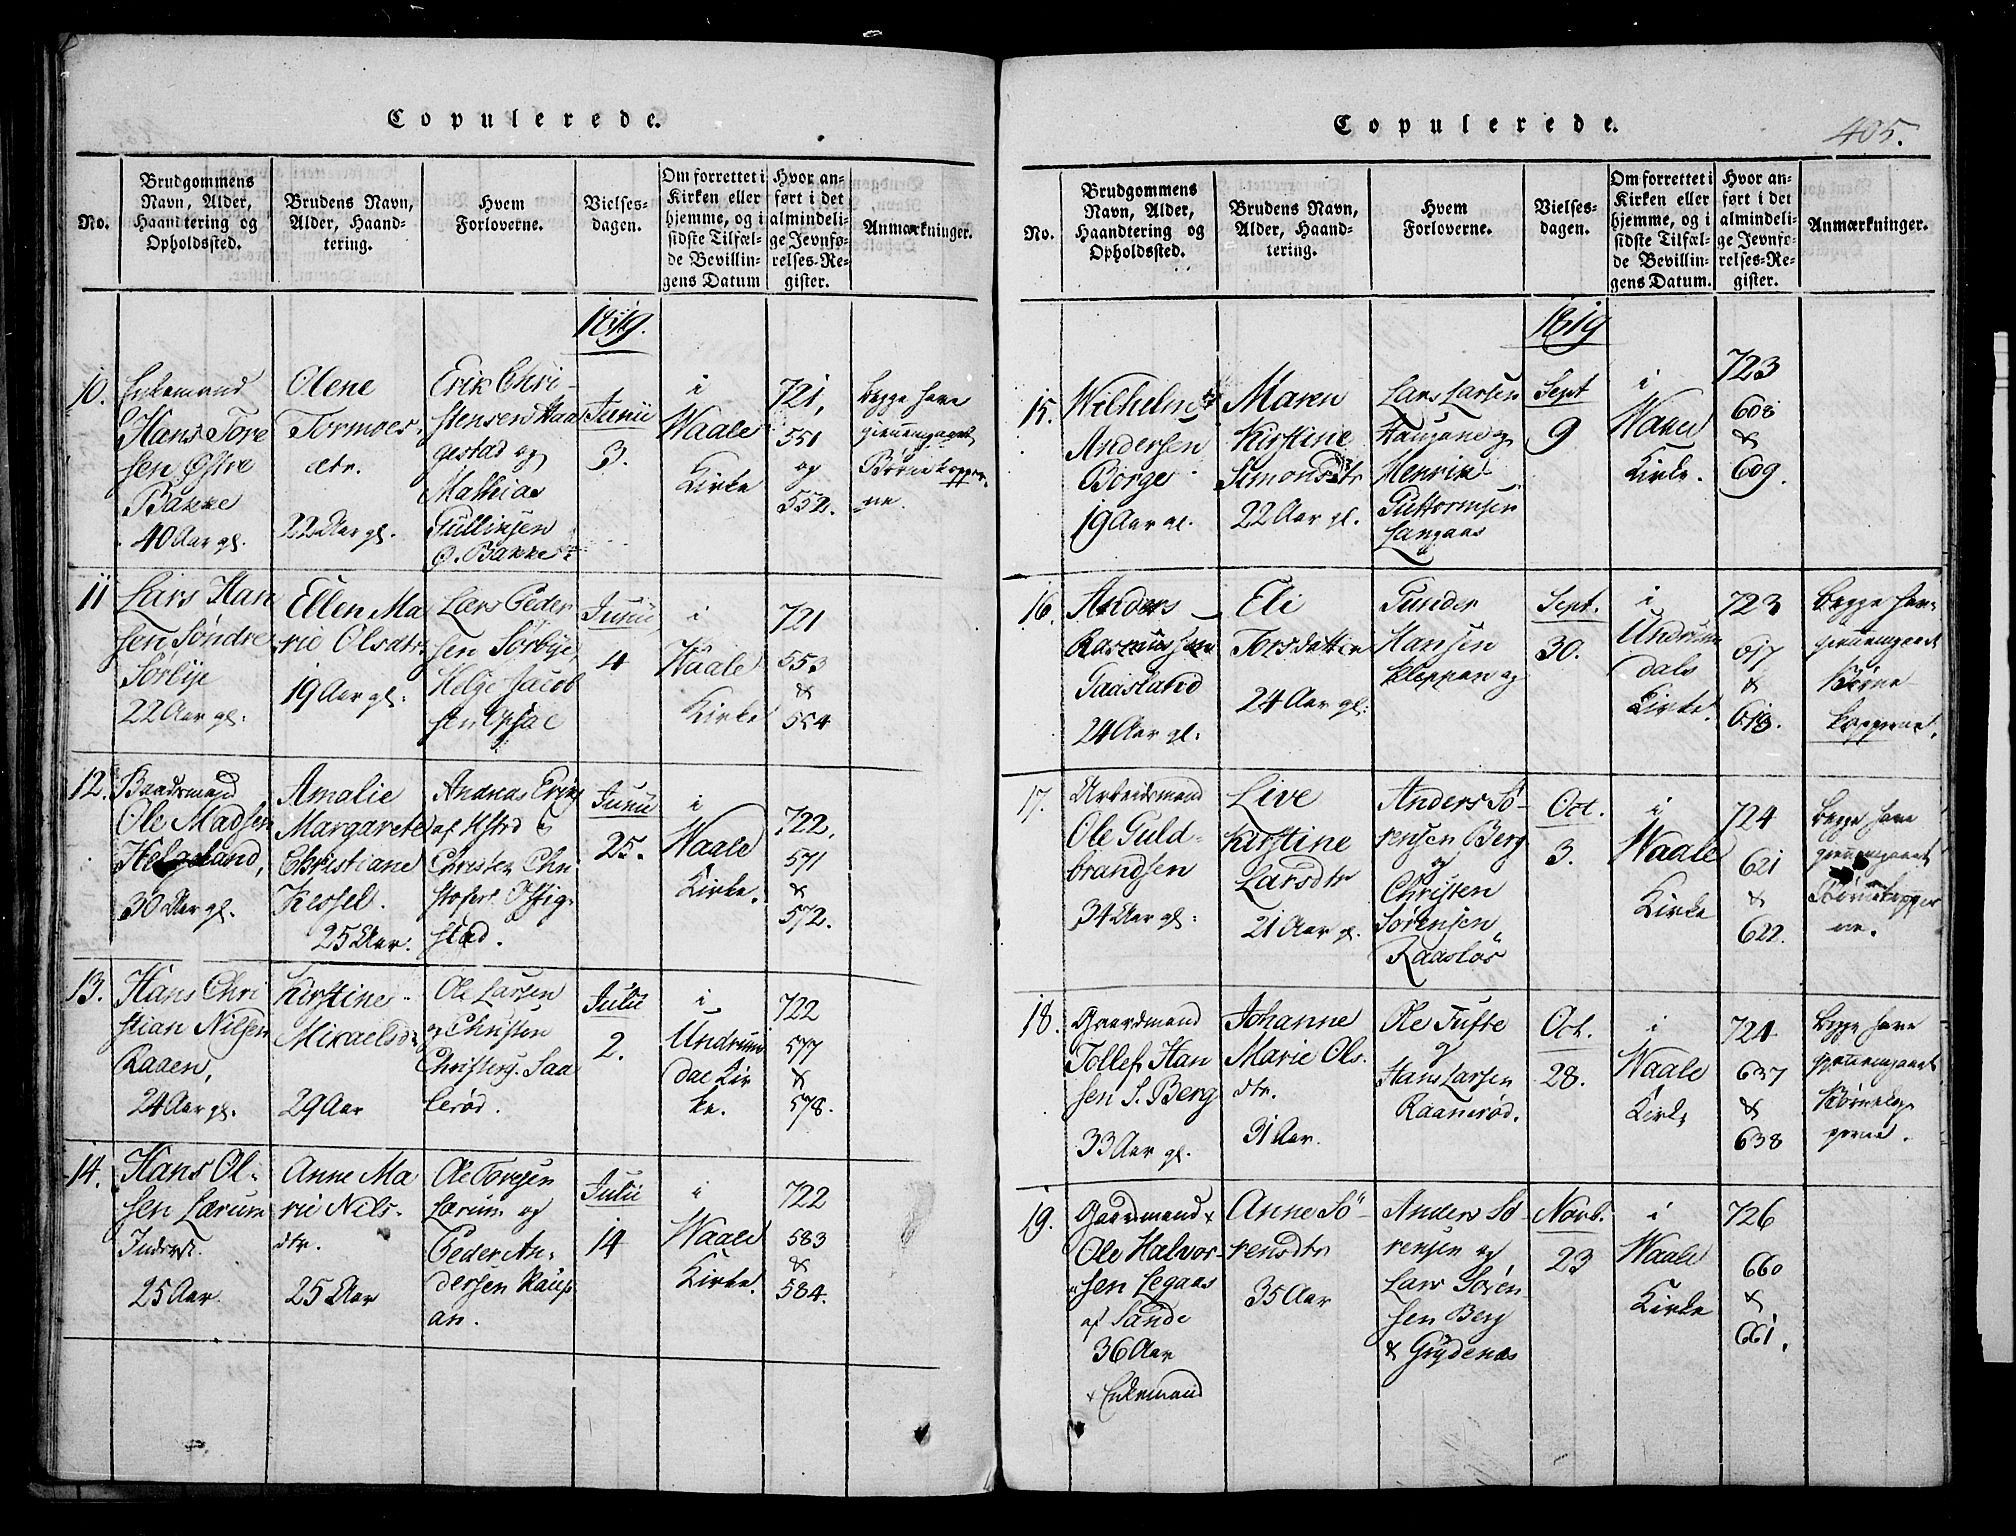 Copulerede.
No.
Brudgommens
Navn, Alder,
Haandtering og
Opholdssted.
Brudens Navn,
Alder, Haand-
tering.
Hvem
Forloverne.
Vielses-
dagen.
Om forrettet i
Kirken eller
hjemme, og i
sidste Tilfæl-
de Bevillin-
gens Datum
Hvor an-
ført i det
almindeli-
ge Jevnfø-
relses-Re-
gister.
Anmærkninger.
1819.
10.
Enkemand
Hans Tore
sen Østre
Bakke
40 Aar gl.
Olene
Tormoes
dtr.
22 Aar gl.
Erik Chri-
stensen Haa
gestad og
Mathias
Gulliksen
Ø. Bakke
Junii
3.
i
Waale
Kirke
721,
551
og
552.
begge have
gienemgaaet
Børnekopper
ne.
11
Lars Han
sen Søndre
Sørbÿe
22 Aar gl.
Ellen Ma
rie Olsdtr
19 Aar gl.
Lars Peder
sen Sørbÿe,
Helge Jacob
sen Opsal
Junii
4
i
Waale
Kirke
721
553
&
554
12.
Baadsmand
Ole Madsen
Helgeland,
30 Aar gl.
Amalie
Margarete
Christiane
Kessel.
25 Aar.
Andreas Erik
af
Christen Chri
stofers.
stad.
Junii
25.
i
Waale
Kirke.
722.
571
&
572.
13.
Hans Chri
stian Nilsen
Raaen,
24 Aar gl.
Kirstine
Mikaelsd
29 Aar
Ole Larsen
og Christen
Christens. Saa
lerød.
Julii
2.
i
Undrums
dal Kir
ke.
722
577
&
578.
14.
Hans Ol-
sen Lærum
Inderst.
25 Aar.
Anne Ma
rie Nils-
dtr.
25 Aar
Ole Toresen
Lærum og
Peder An-
dersen Raup
an.
Julii
14
i
Waale
Kirke.
722
583
&
584.
Copulerede.
405.
No.
Brudgommens
Navn, Alder,
Haandtering og
Opholdssted.
Brudens Navn,
Alder, Haand-
tering.
Hvem
Forloverne.
Vielses-
dagen.
Om forrettet i
Kirken eller
hjemme, og i
sidste Tilfæl-
de Bevillin-
gens Datum.
Hvor an-
ført i det
almindeli-
ge Jevnfø-
relses-Re-
gister.
Anmærkninger.
1819
15.
Wilhelm
Andersen
Borge
19 Aar gl.
Maren
Kirstine
Simonsdtr
22 Aar gl.
Lars Larsen
Haugane og
Henrik
Guttormsen
Langaas
Sept
9
i
Waale
Kirke.
723
608
&
609.
16.
Anders
Rasmussen
Gaasland
24 Aar gl.
Eli
Torsdatter
24 Aar gl.
Gunder
Hansen
Kleppan og
Sept.
30.
i
Undrums
dals
Kirke.
723
617
&
618.
begge have
gienemgaaet
Børne
kopperne.
17.
Arbeidsmand
Ole Guld-
brandsen
34 Aar gl.
Live
Kirstine
Larsdtr
21 Aar gl.
Anders Sø-
rensen Berg
og
Christen
Sørensen,
Raasløs
Oct.
3.
i
Waale
Kirke
724
621
&
622.
begge have
gienemgaaet
Børnekopper
ne.
18.
Gaardmand
Tollef Han
sen S. Berg
33 Aar gl.
Johanne
Marie Ols-
dtr.
31 Aar.
Ole Tufte
og
Hans Larsen
Raanerød.
Oct.
28.
i
Waale
Kirke
724
637
&
638
begge have
gienemgaaet
Børnekop
perne.
19.
Gaardmand +
Ole Halvor-
sen Legaas
af Sande
36 Aar
+ Enkemand
Anne Sö-
rensdtr
35 Aar
Anders Sø-
rensen og
Lars Søren
sen Berg
& Grÿdenæs
Novb.
23
i
Waale
Kirke
726
660
&
661.